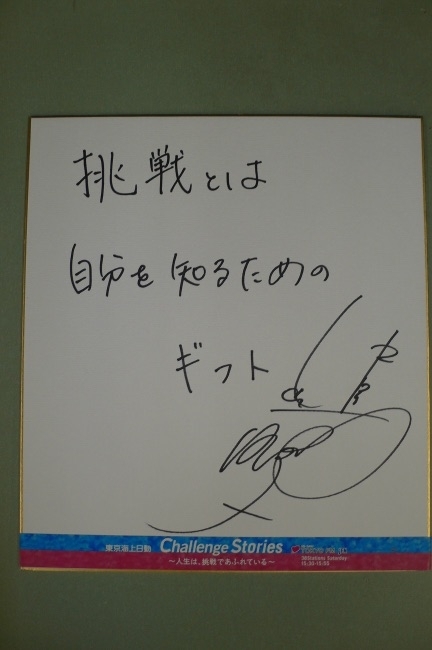 挑戦とは
自分を知るための
ギフト
東京海上日動 Challenge Stories
～人生は、挑戦であふれている～
TOKYO FM
38Stations Saturday